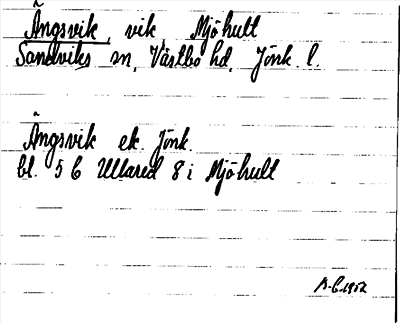 Ängsvik, vik, Mjöhult
Sandviks sn, Västbo hd, Jönk. l.
Ängsvik ek. Jönk.
bl. 5 C Ullared 8 i Mjöhult